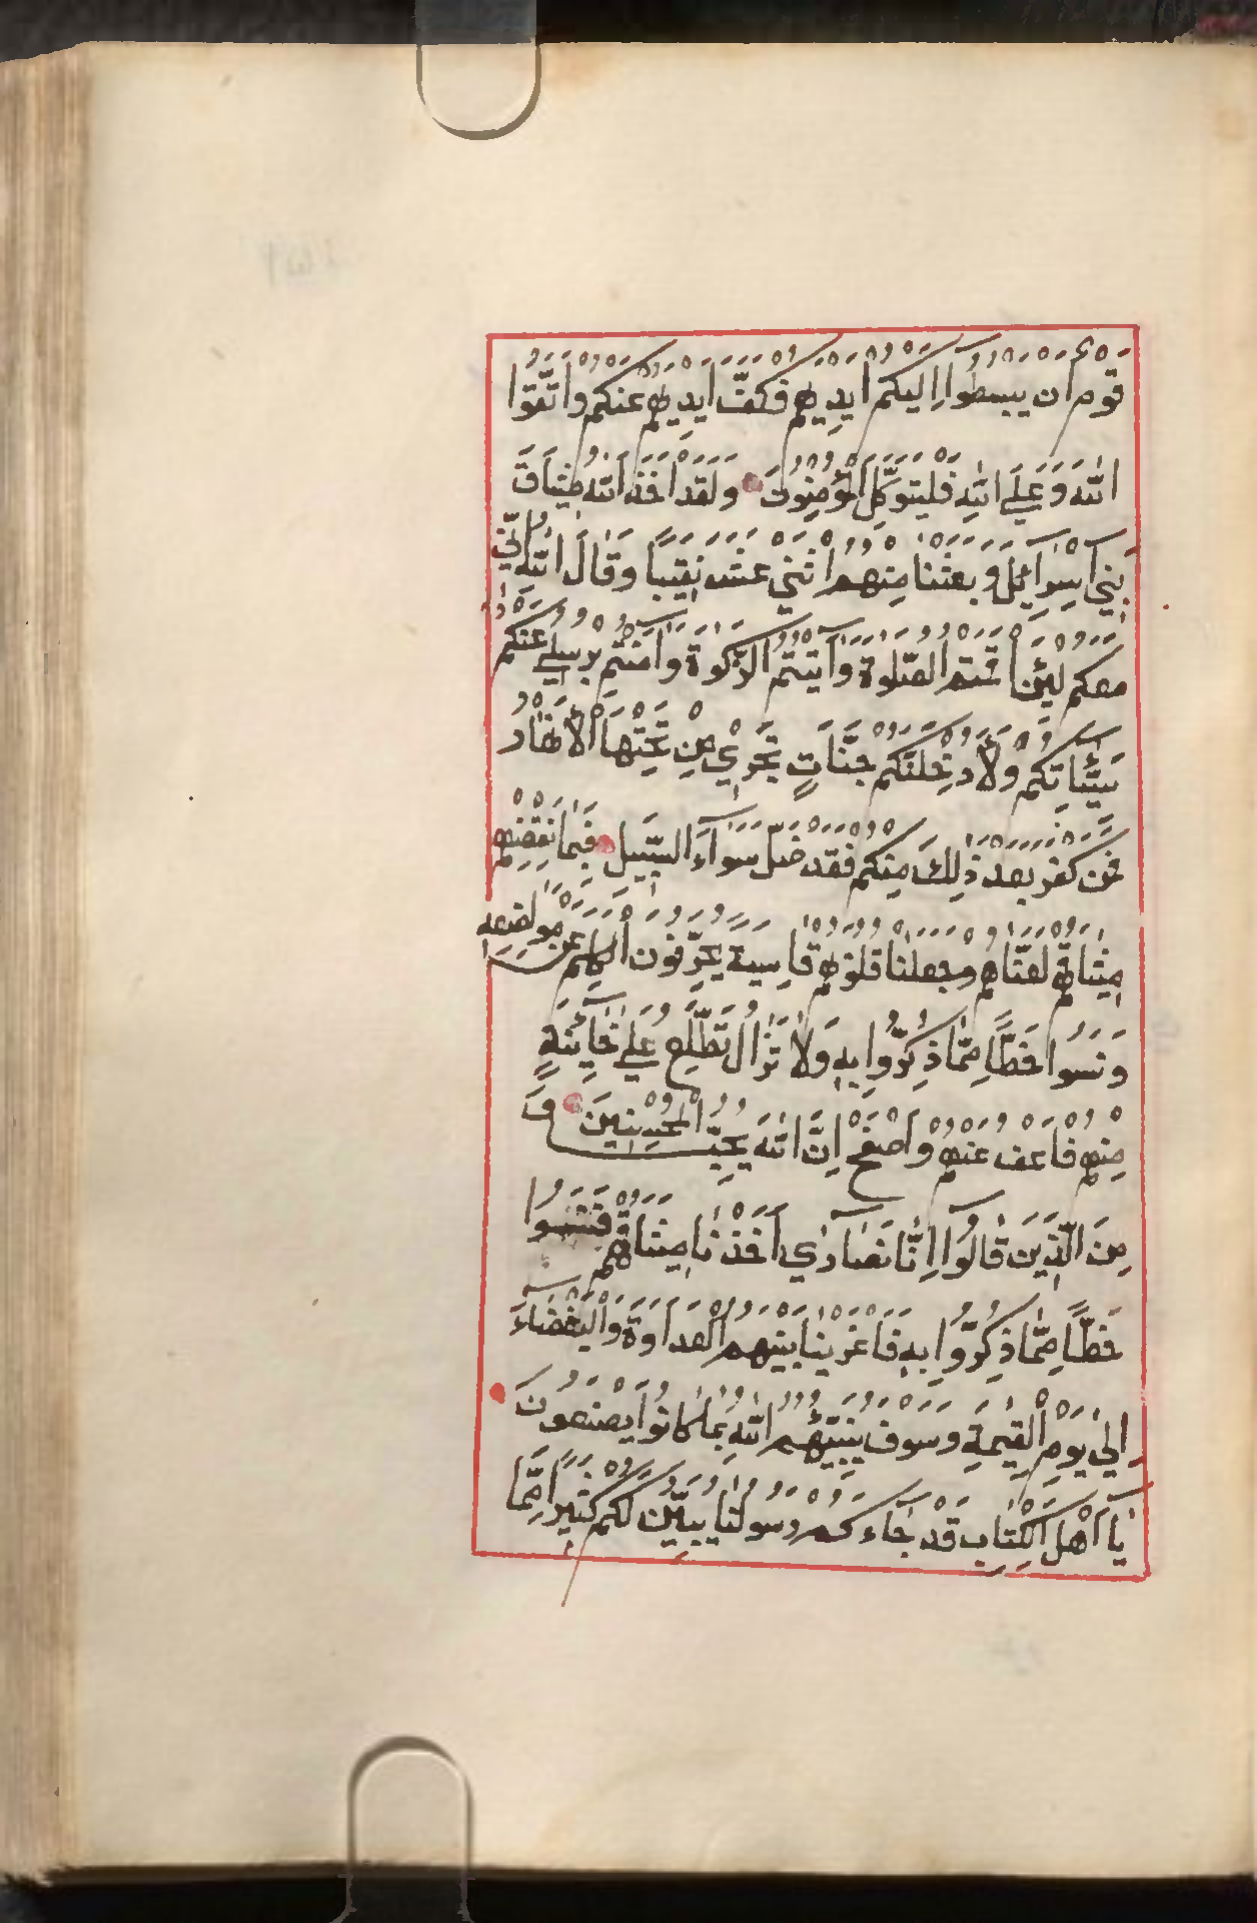 قَوْمٌ اَنْ يَبْسُطُوا اِلَيْكُمْ اَيْدِيَهُمْ فَكَفَّ اَيْدِيَهُمْ عَنْكُمْ وَاتَّقُوا
اللّٰهَ وَعَلَي اللّٰهِ فَلْيَتَوَكَّلِ الْمُؤْمِنُونَ وَلَقَدْ اَخَذَ اللّٰهُ مِيثَاقَ
بَنِي اِسْرَايِٕلَ وَبَعَثْنَا مِنْهُمُ اثْنَيْ عَشَرَ نَقِيبًا وَقَالَ اللّٰهُ اِنِّي
مَعَكُمْ لَئِنْ اَقَمْتُمُ الصَّلٰوةَ وَآتَيْتُمُ الزَّكٰوةَ وَآمَنْتُمْ بِرُسُلِي عَنْكُمْ
سَيِّئَاتِكُمْ وَلَأُدْخِلَنَّكُمْ جَنَّاتٍ تَجْرِي مِنْ تَحْتِهَا الْأَنْهَارُ
فَمَنْ كَفَرَ بَعْدَ ذٰلِكَ مِنْكُمْ فَقَدْ ضَلَّ سَوَآءَ السَّبِيلِ فَبِمَا نَقْضِهِمْ
مِيثَاقَهُمْ لَعَنَّاهُمْ وَجَعَلْنَا قُلُوبَهُمْ قَاسِيَةً يُحَرِّفُونَ الْكَلِمَ عَنْ مَوَاضِعِهِ
وَنَسُوا حَظًّا مِمَّا ذُكِّرُوا بِهِ وَلَا تَزَالُ تَطَّلِعُ عَلَي خَآئِنَةٍ
مِنْهُمْ فَاعْفُ عَنْهُمْ وَاصْفَحْ اِنَّ اللّٰهَ يُحِبُّ الْمُحْسِنِينَ وَ
مِنَ الَّذِينَ قَالُوا اِنَّا نَصَارَي اَخَذْنَا مِيثَاقَهُمْ فَنَسُوا
حَظًّا مِمَّا ذُكِّرُوا بِهِ فَاَغْرَيْنَا بَيْنَهُمُ الْعَدَاوَةَ وَالْبَغْضَآءَ
اِلَي يَوْمِ الْقِيٰمَةِ وَسَوْفَ يُنَبِّئُهُمُ اللّٰهُ بِمَا كَانُوا يَصْنَعُونَ
يَا اَهْلَ الْكِتَابِ قَدْ جَآءَكُمْ رَسُولُنَا يُبَيِّنُ لَكُمْ كَثِيرًا مِمَّا